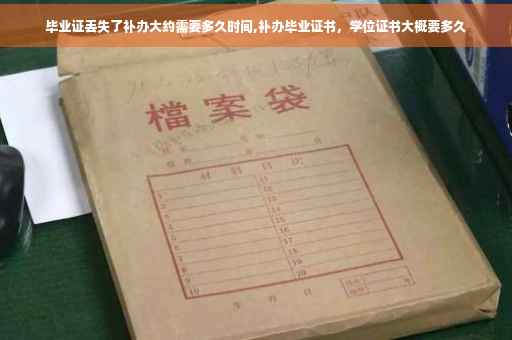 毕业证丢失了补办大约需要多久时间,补办毕业证书，学位证书大概要多久
檔案袋
材料目次
1
2
3
4
5
6
7
8
9
10
11
12
13
14
15
16
17
18
19
20
年 月 日